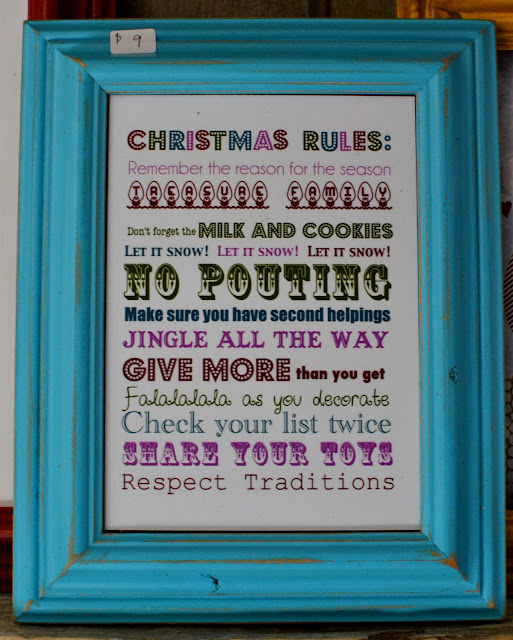 $ 9
CHRISTMAS RULES:
Remember the reason for the season
TREASURE FAMILY
Don't forget the MILK AND COOKIES
LET IT SNOW! LET IT SNOW! LET IT SNOW!
NO POUTING
Make sure you have second helpings
JINGLE ALL THE WAY
GIVE MORE than you get
Falalalala as you decorate
Check your list twice
SHARE YOUR TOYS
Respect Traditions